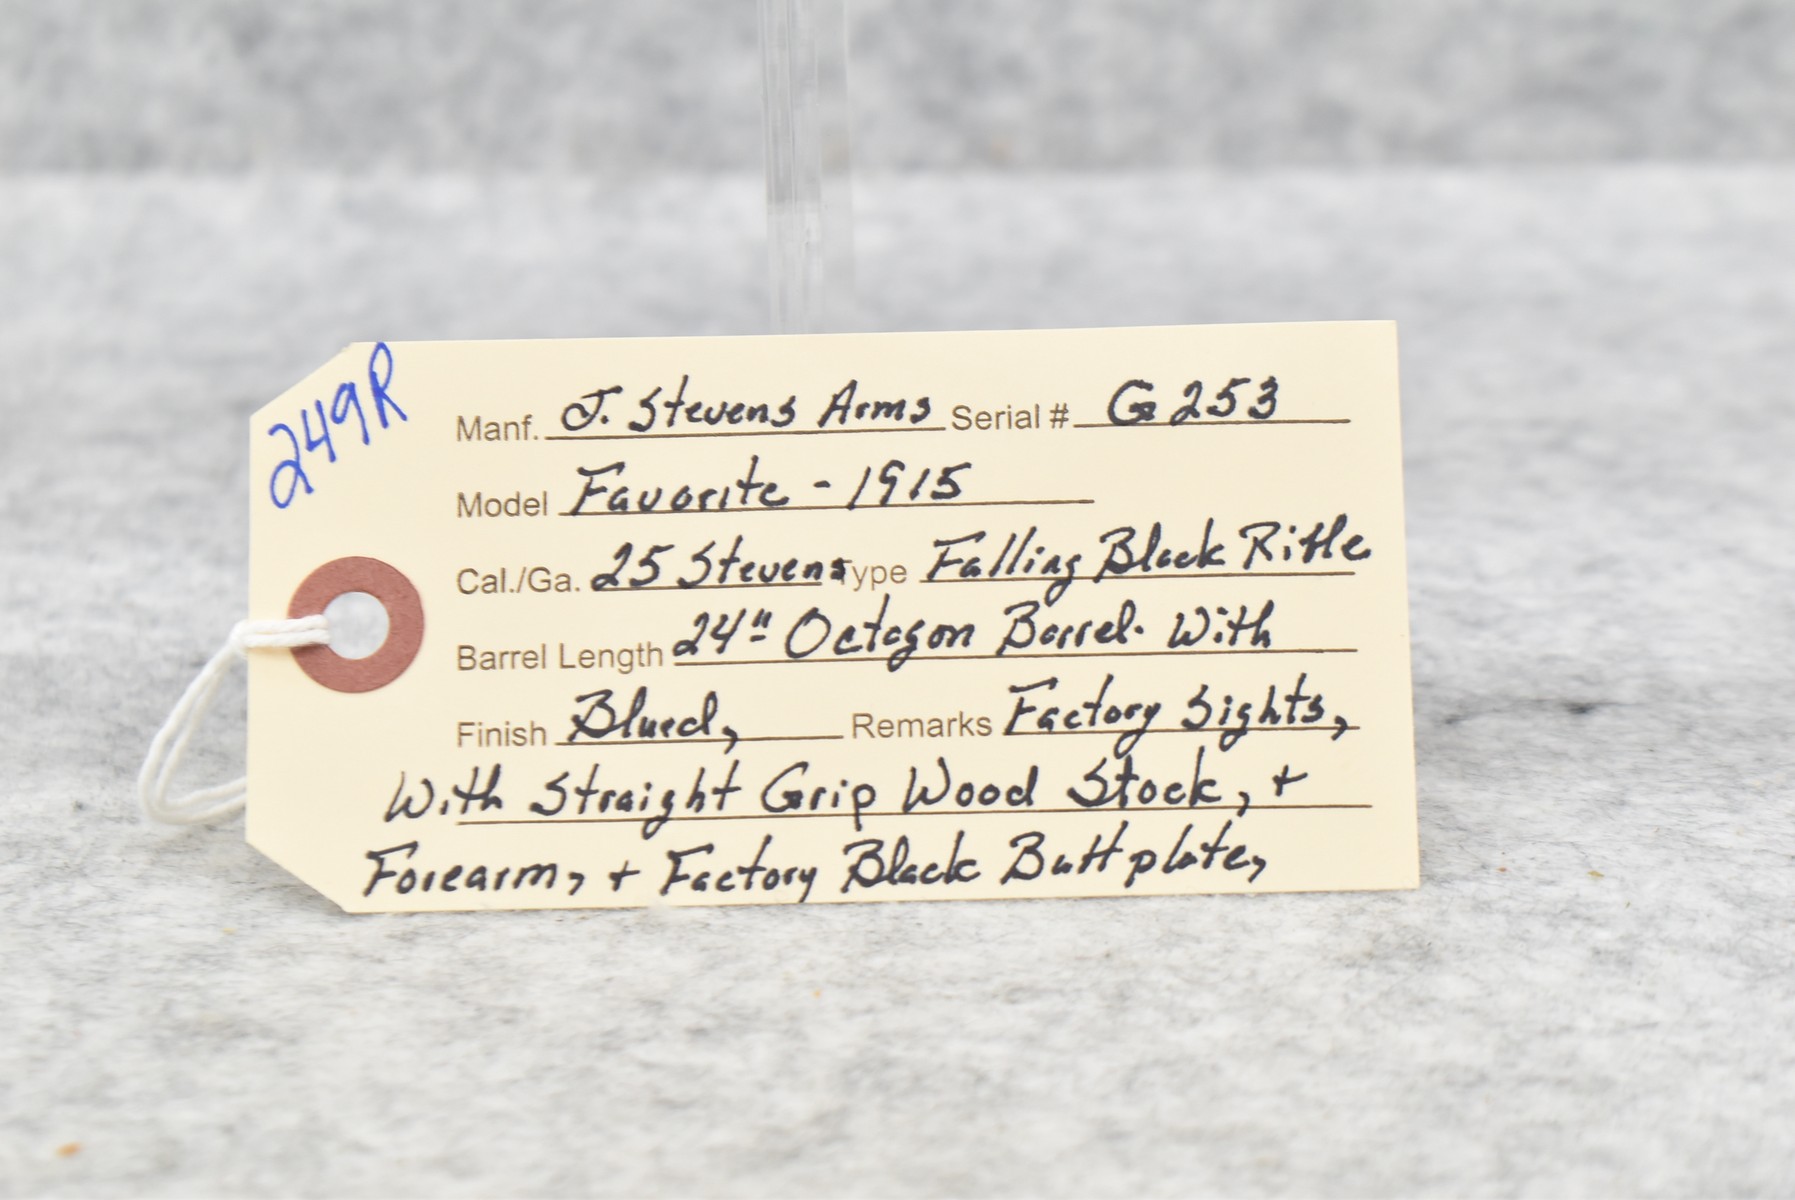 249R
Manf. J. Stevens Arms Serial # G253
Model Favorite - 1915
Cal./Ga. 25 Stevens Type Falling Block Rifle
Barrel Length 24" Octagon Barrel. With
Finish Blued, Remarks Factory Sights,
With Straight Grip Wood Stock, +
Forearm, + Factory Black Buttplate,